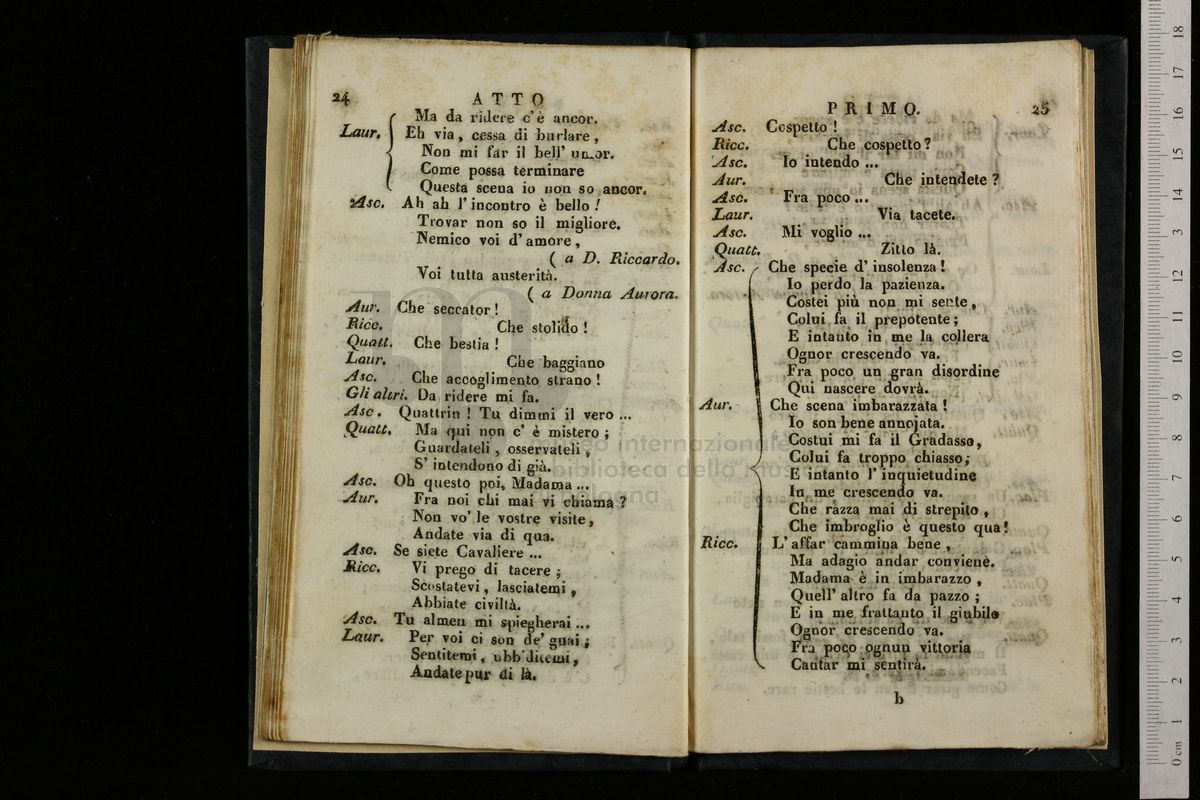 24 ATTO
Ma da ridere c'è ancor.
Laur. Eh via, cessa di burlare,
Non mi far il bell' umor.
Come possa terminare
Questa scena io non so ancor.
Asc. Ah ah l'incontro è bello!
Trovar non so il migliore.
Nemico voi d'amore,
( a D. Riccardo.
Voi tutta austerità.
( a Donna Aurora.
Aur. Che seccator!
Ricc. Che stolido!
Quatt. Che bestia!
Laur. Che baggiano
Asc. Che accoglimento strano!
Gli altri. Da ridere mi fa.
Asc. Quattrin! Tu dimmi il vero ...
Quatt. Ma qui non c'è mistero;
Guardateli, osservateli,
S' intendono di già.
Asc. Oh questo poi, Madama ...
Aur. Fra noi chi mai vi chiama?
Non vo' le vostre visite,
Andate via di qua.
Asc. Se siete Cavaliere ...
Ricc. Vi prego di tacere;
Scostatevi, lasciatemi,
Abbiate civiltà.
Asc. Tu almen mi spiegherai ...
Laur. Per voi ci son de' guai;
Sentitemi, ubbiditemi,
Andate pur di là.
PRIMO. 25
Asc. Cospetto!
Ricc. Che cospetto?
Asc. Io intendo ...
Aur. Che intendete?
Asc. Fra poco ...
Laur. Via tacete.
Asc. Mi voglio ...
Quatt. Zitto là.
Asc. Che specie d' insolenza!
Io perdo la pazienza.
Costei più non mi sente,
Colui fa il prepotente;
E intanto in me la collera
Ognor crescendo va.
Fra poco un gran disordine
Qui nascere dovrà.
Aur. Che scena imbarazzata!
Io son bene annojata.
Costui mi fa il Gradasso,
Colui fa troppo chiasso;
E intanto l' inquietudine
In me crescendo va.
Che razza mai di strepito,
Che imbroglio è questo qua!
Ricc. L' affar cammina bene,
Ma adagio andar conviene.
Madama è in imbarazzo,
Quell' altro fa da pazzo;
E in me frattanto il giubilo
Ognor crescendo va.
Fra poco ognun vittoria
Cantar mi sentirà.
b
museo internazionale
biblioteca della musica
bologna
0 cm 1 2 3 4 5 6 7 8 9 10 11 12 13 14 15 16 17 18